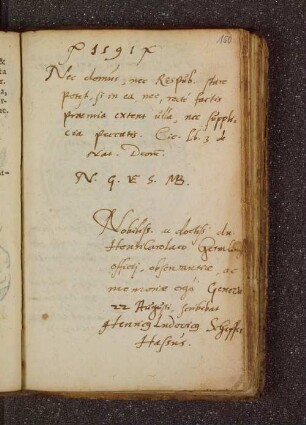 160
1591
Nec domus, nec Respub. stare
potest, si in ea nec, recte factis
præmia extent ulla, nec suppli-
cia peccatis. Cic. Lb. 3 de
Nat. Deor.
N. G. E. S.
Nobiliss. ac doctiss. dn.
officij, observantiæ, ac
memoriæ ergo Genevæ
22 Augusti, scribebat
Henricus Ludovicus Scheffer
Hassus.